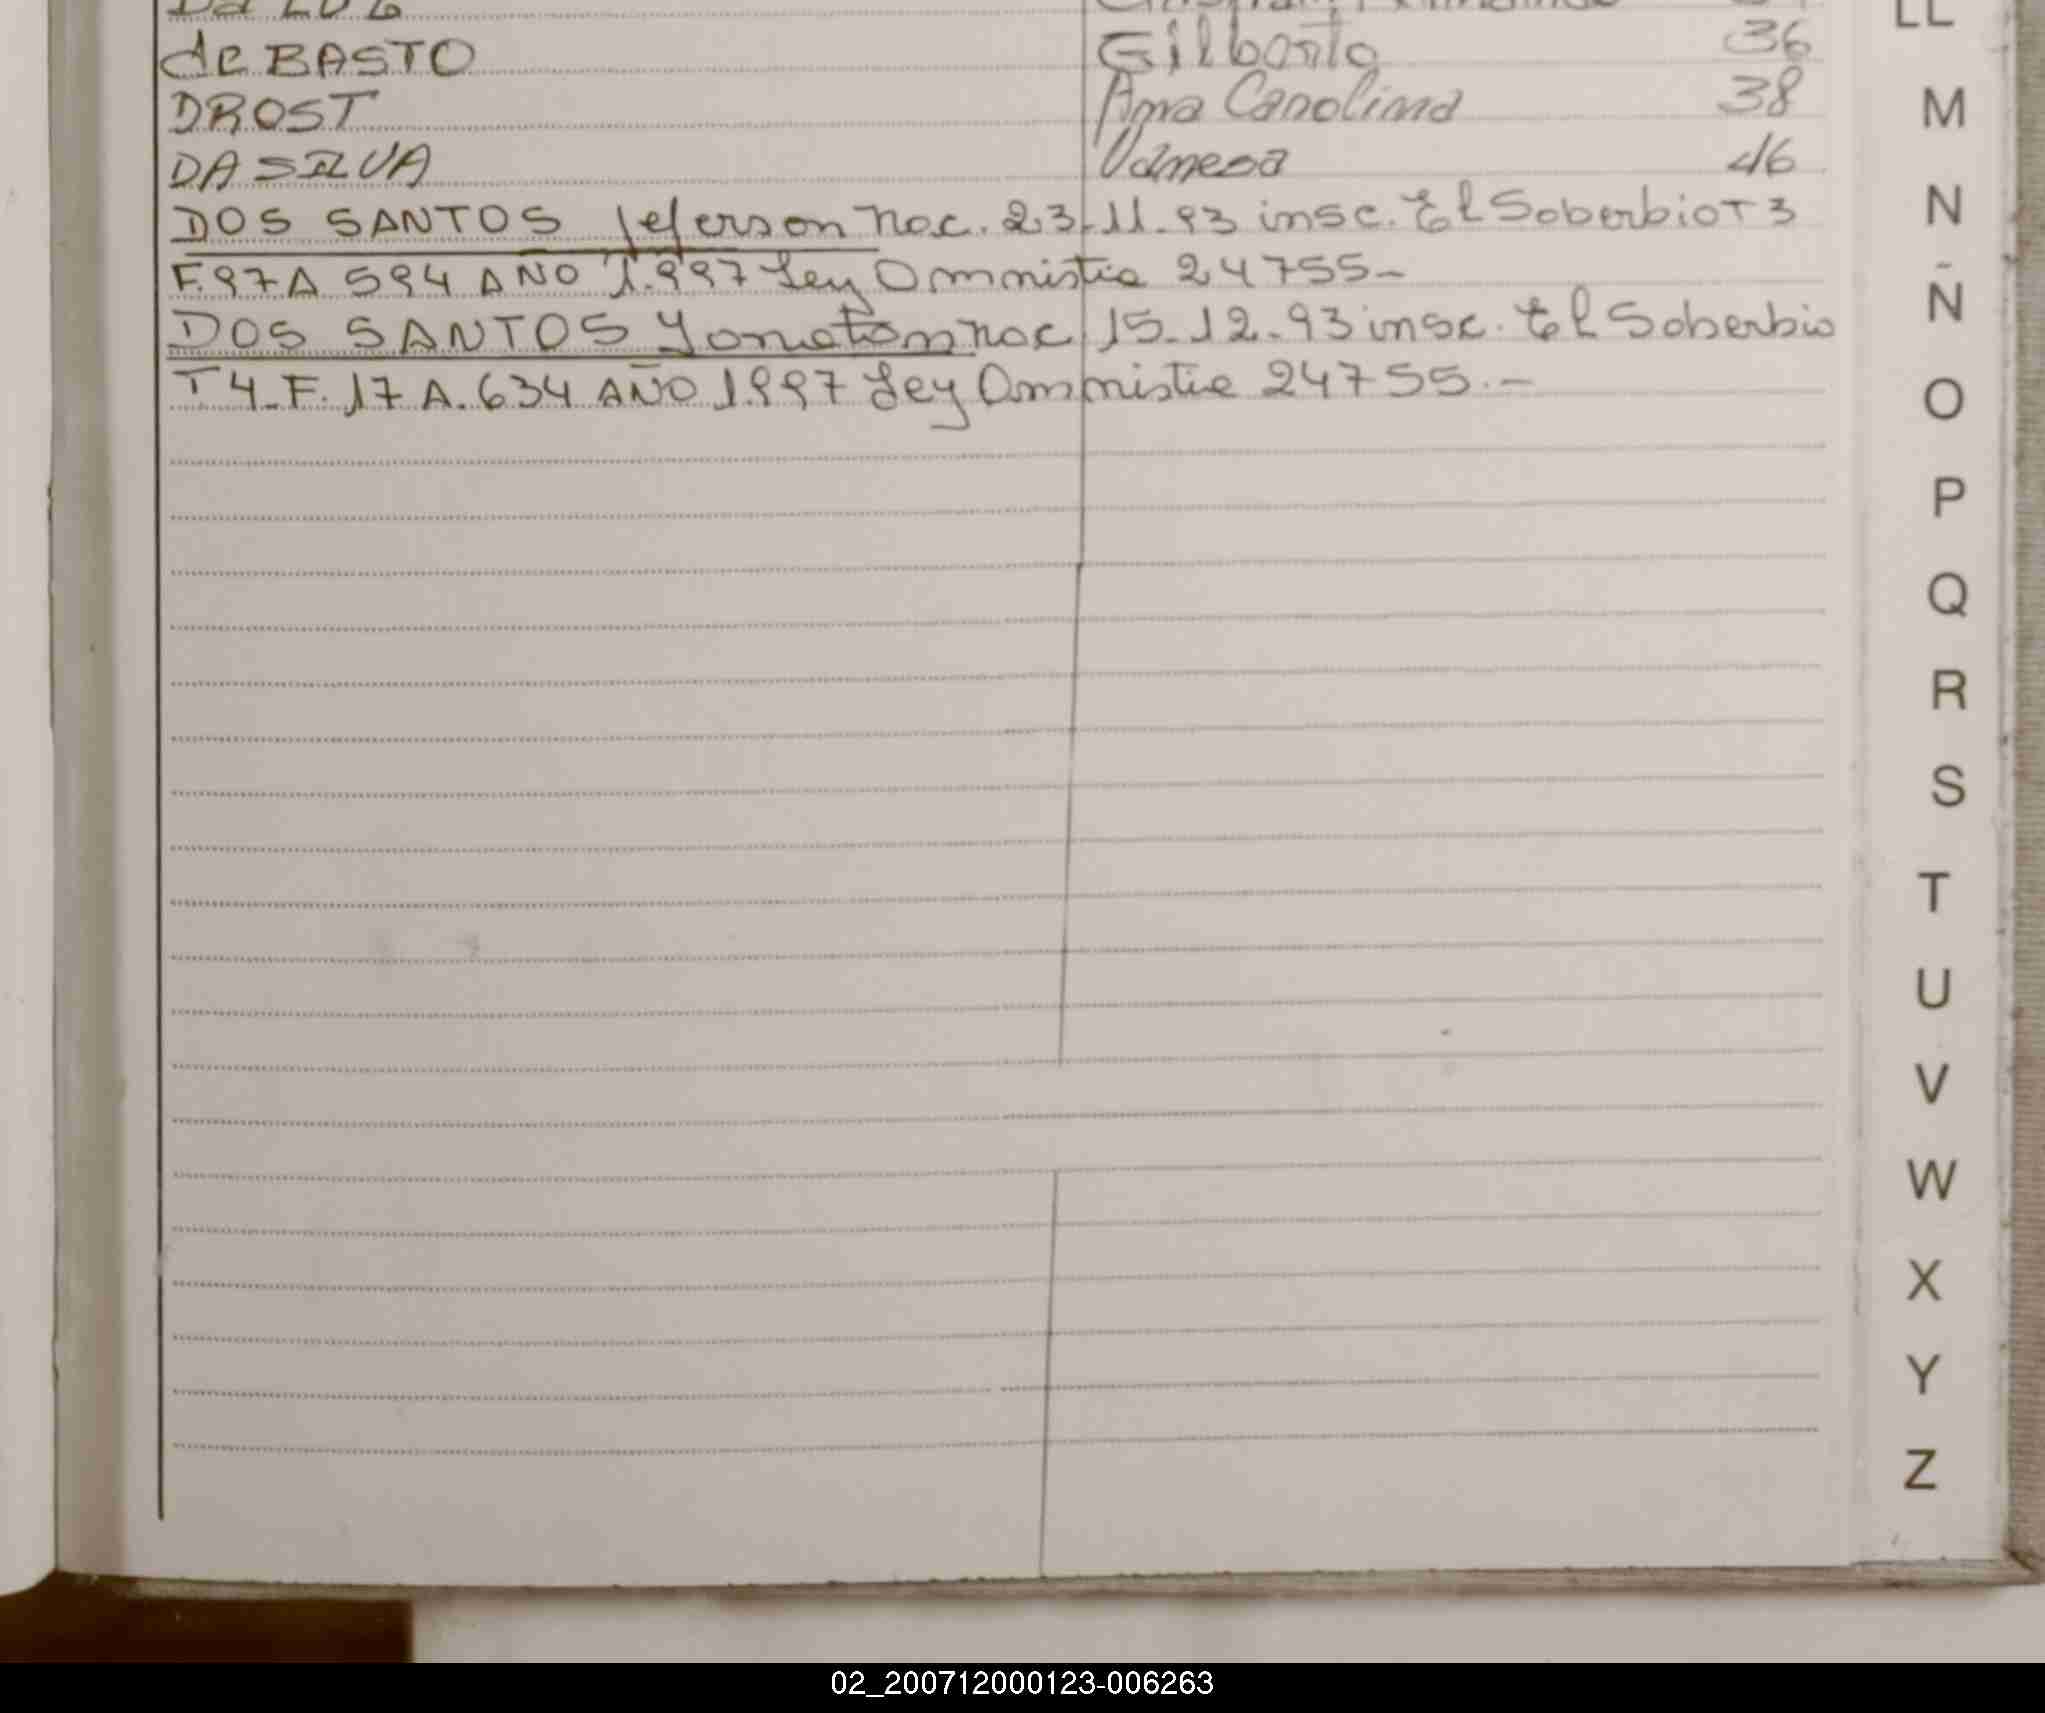 Da LUZ
de BASTO Gilberto 36
DROST Ana Carolina 38
DA SILVA Vanesa 46
DOS SANTOS Jeferson nac. 23-11-93 insc. El Soberbio T 3
F. 97 A 594 AÑO 1.997 Ley Amnistia 24755-
DOS SANTOS Yonatan nac 15-12-93 insc. El Soberbio
T 4-F. 17 A. 634 AÑO 1.997 Ley Amnistia 24755.-
LL
M
N
Ñ
O
P
Q
R
S
T
U
V
W
X
Y
Z
02_200712000123-006263